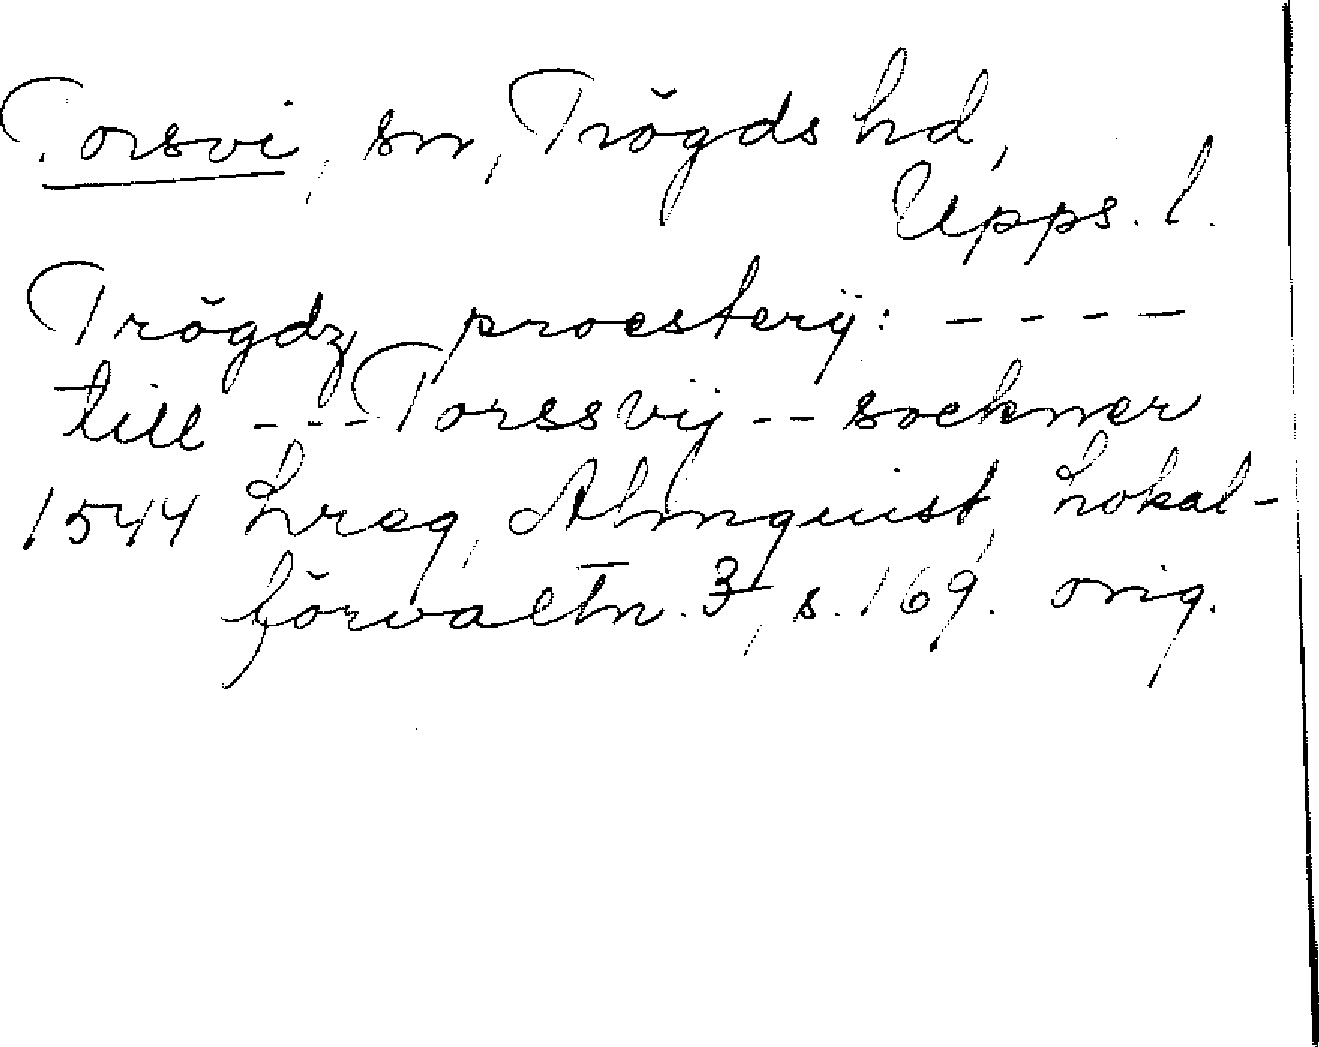 Torsvi, sn, Trögds hd,
Upps. l.
Trögdz proesterij: ----
till --- Torssvij -- sockner
1544 Lreg, Almquist, Lokal-
förvaltn. 3, s. 169. orig.